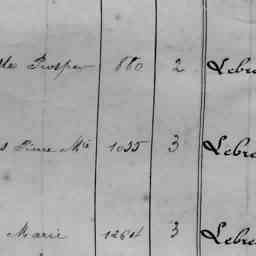 Prosper 880 2 Lebre
Pierre Mie 1055 3 Lebre
Marie 1264 3 Lebre